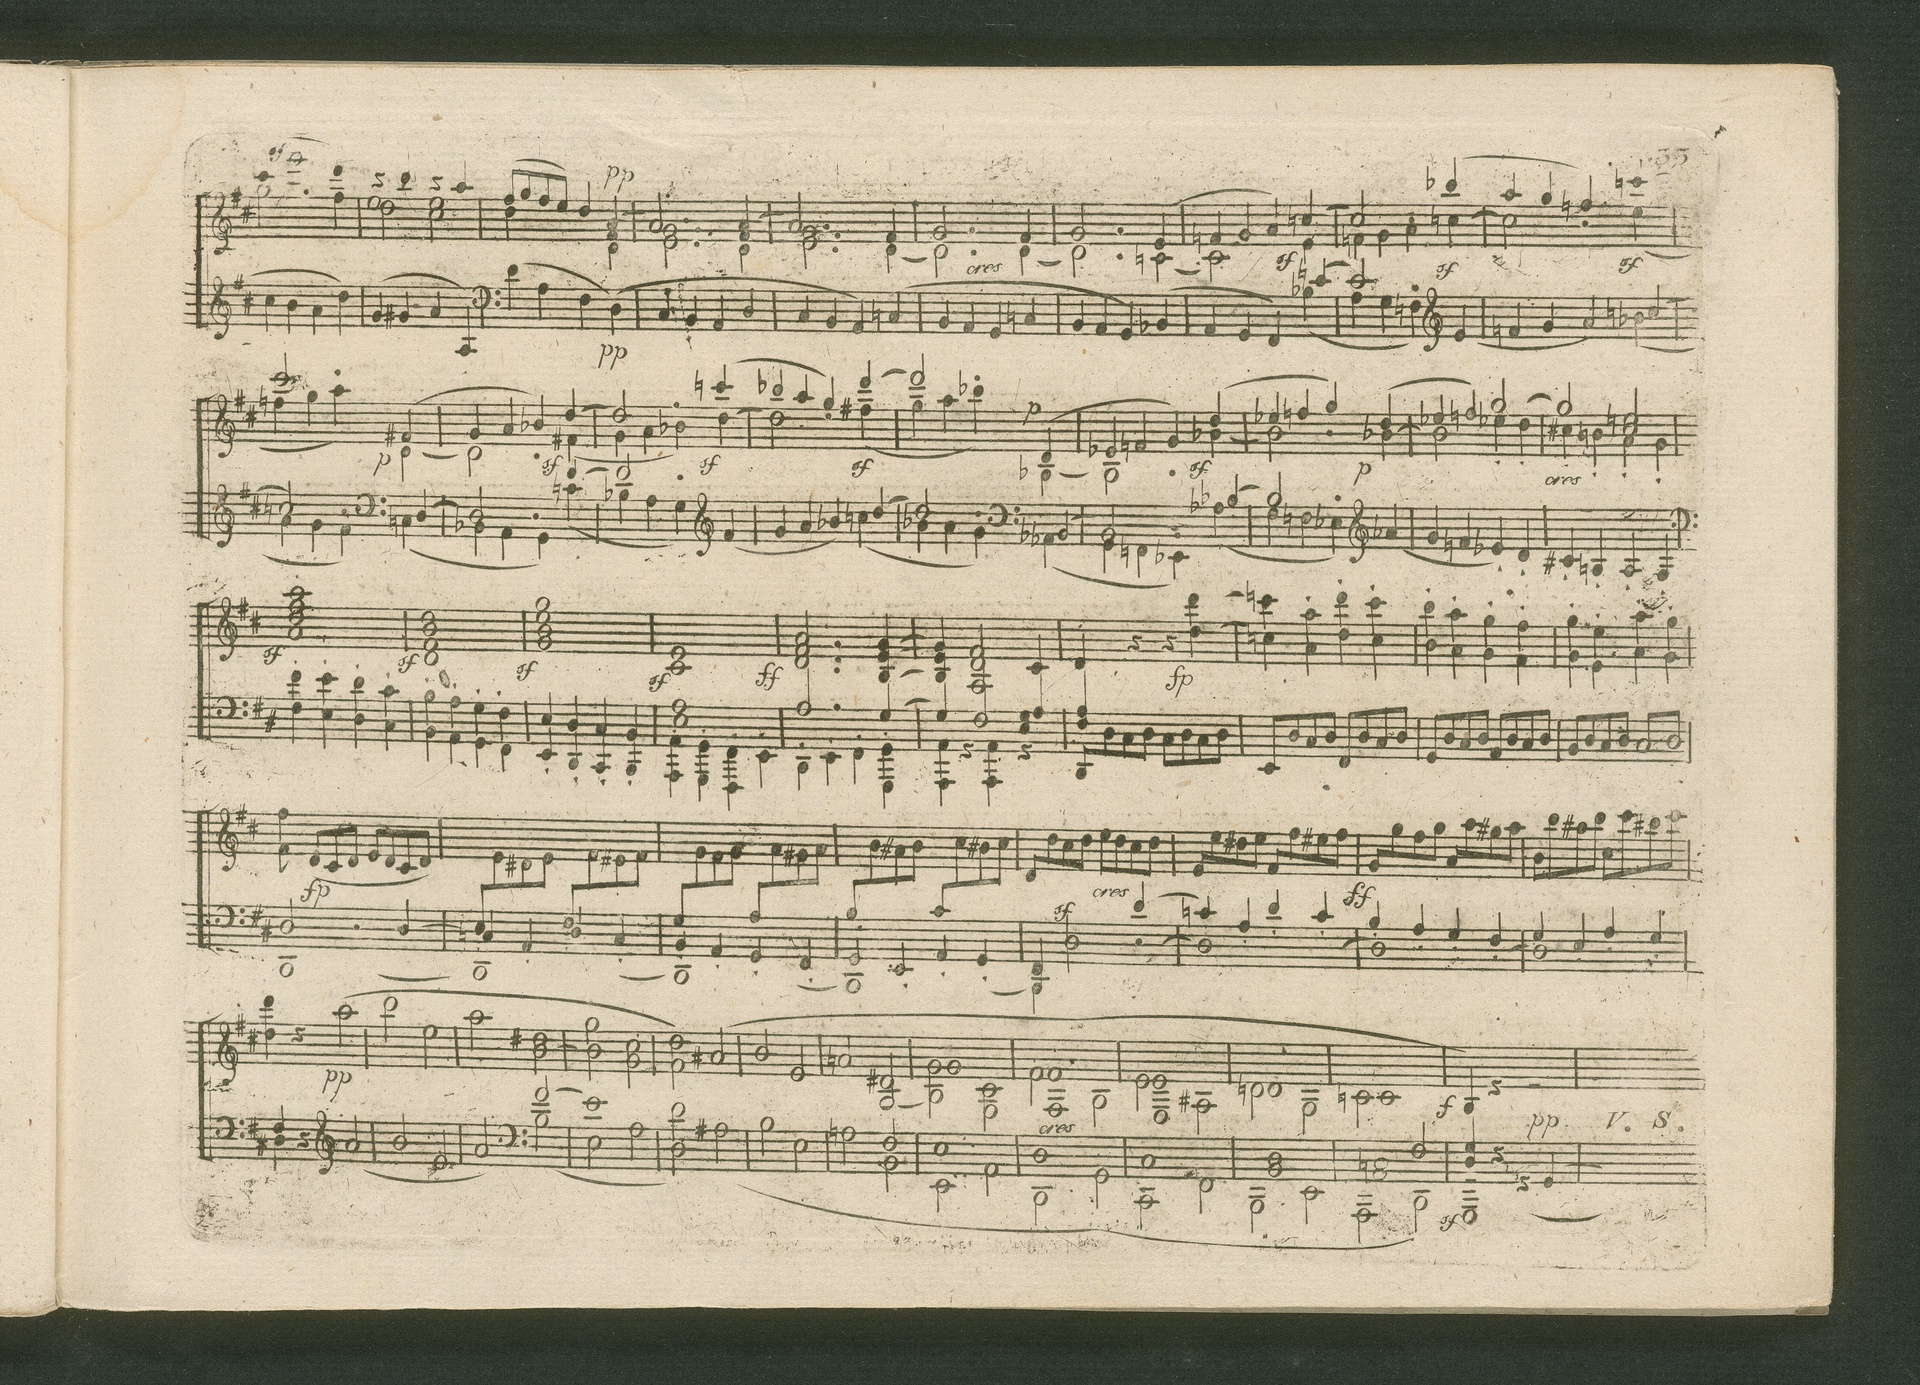 33
sf
pp
cres sf sf sf
pp
p
p sf sf sf sf p cres
sf sf sf sf ff fp
fp cres ff
sf
pp f
cres pp V. S.
sf